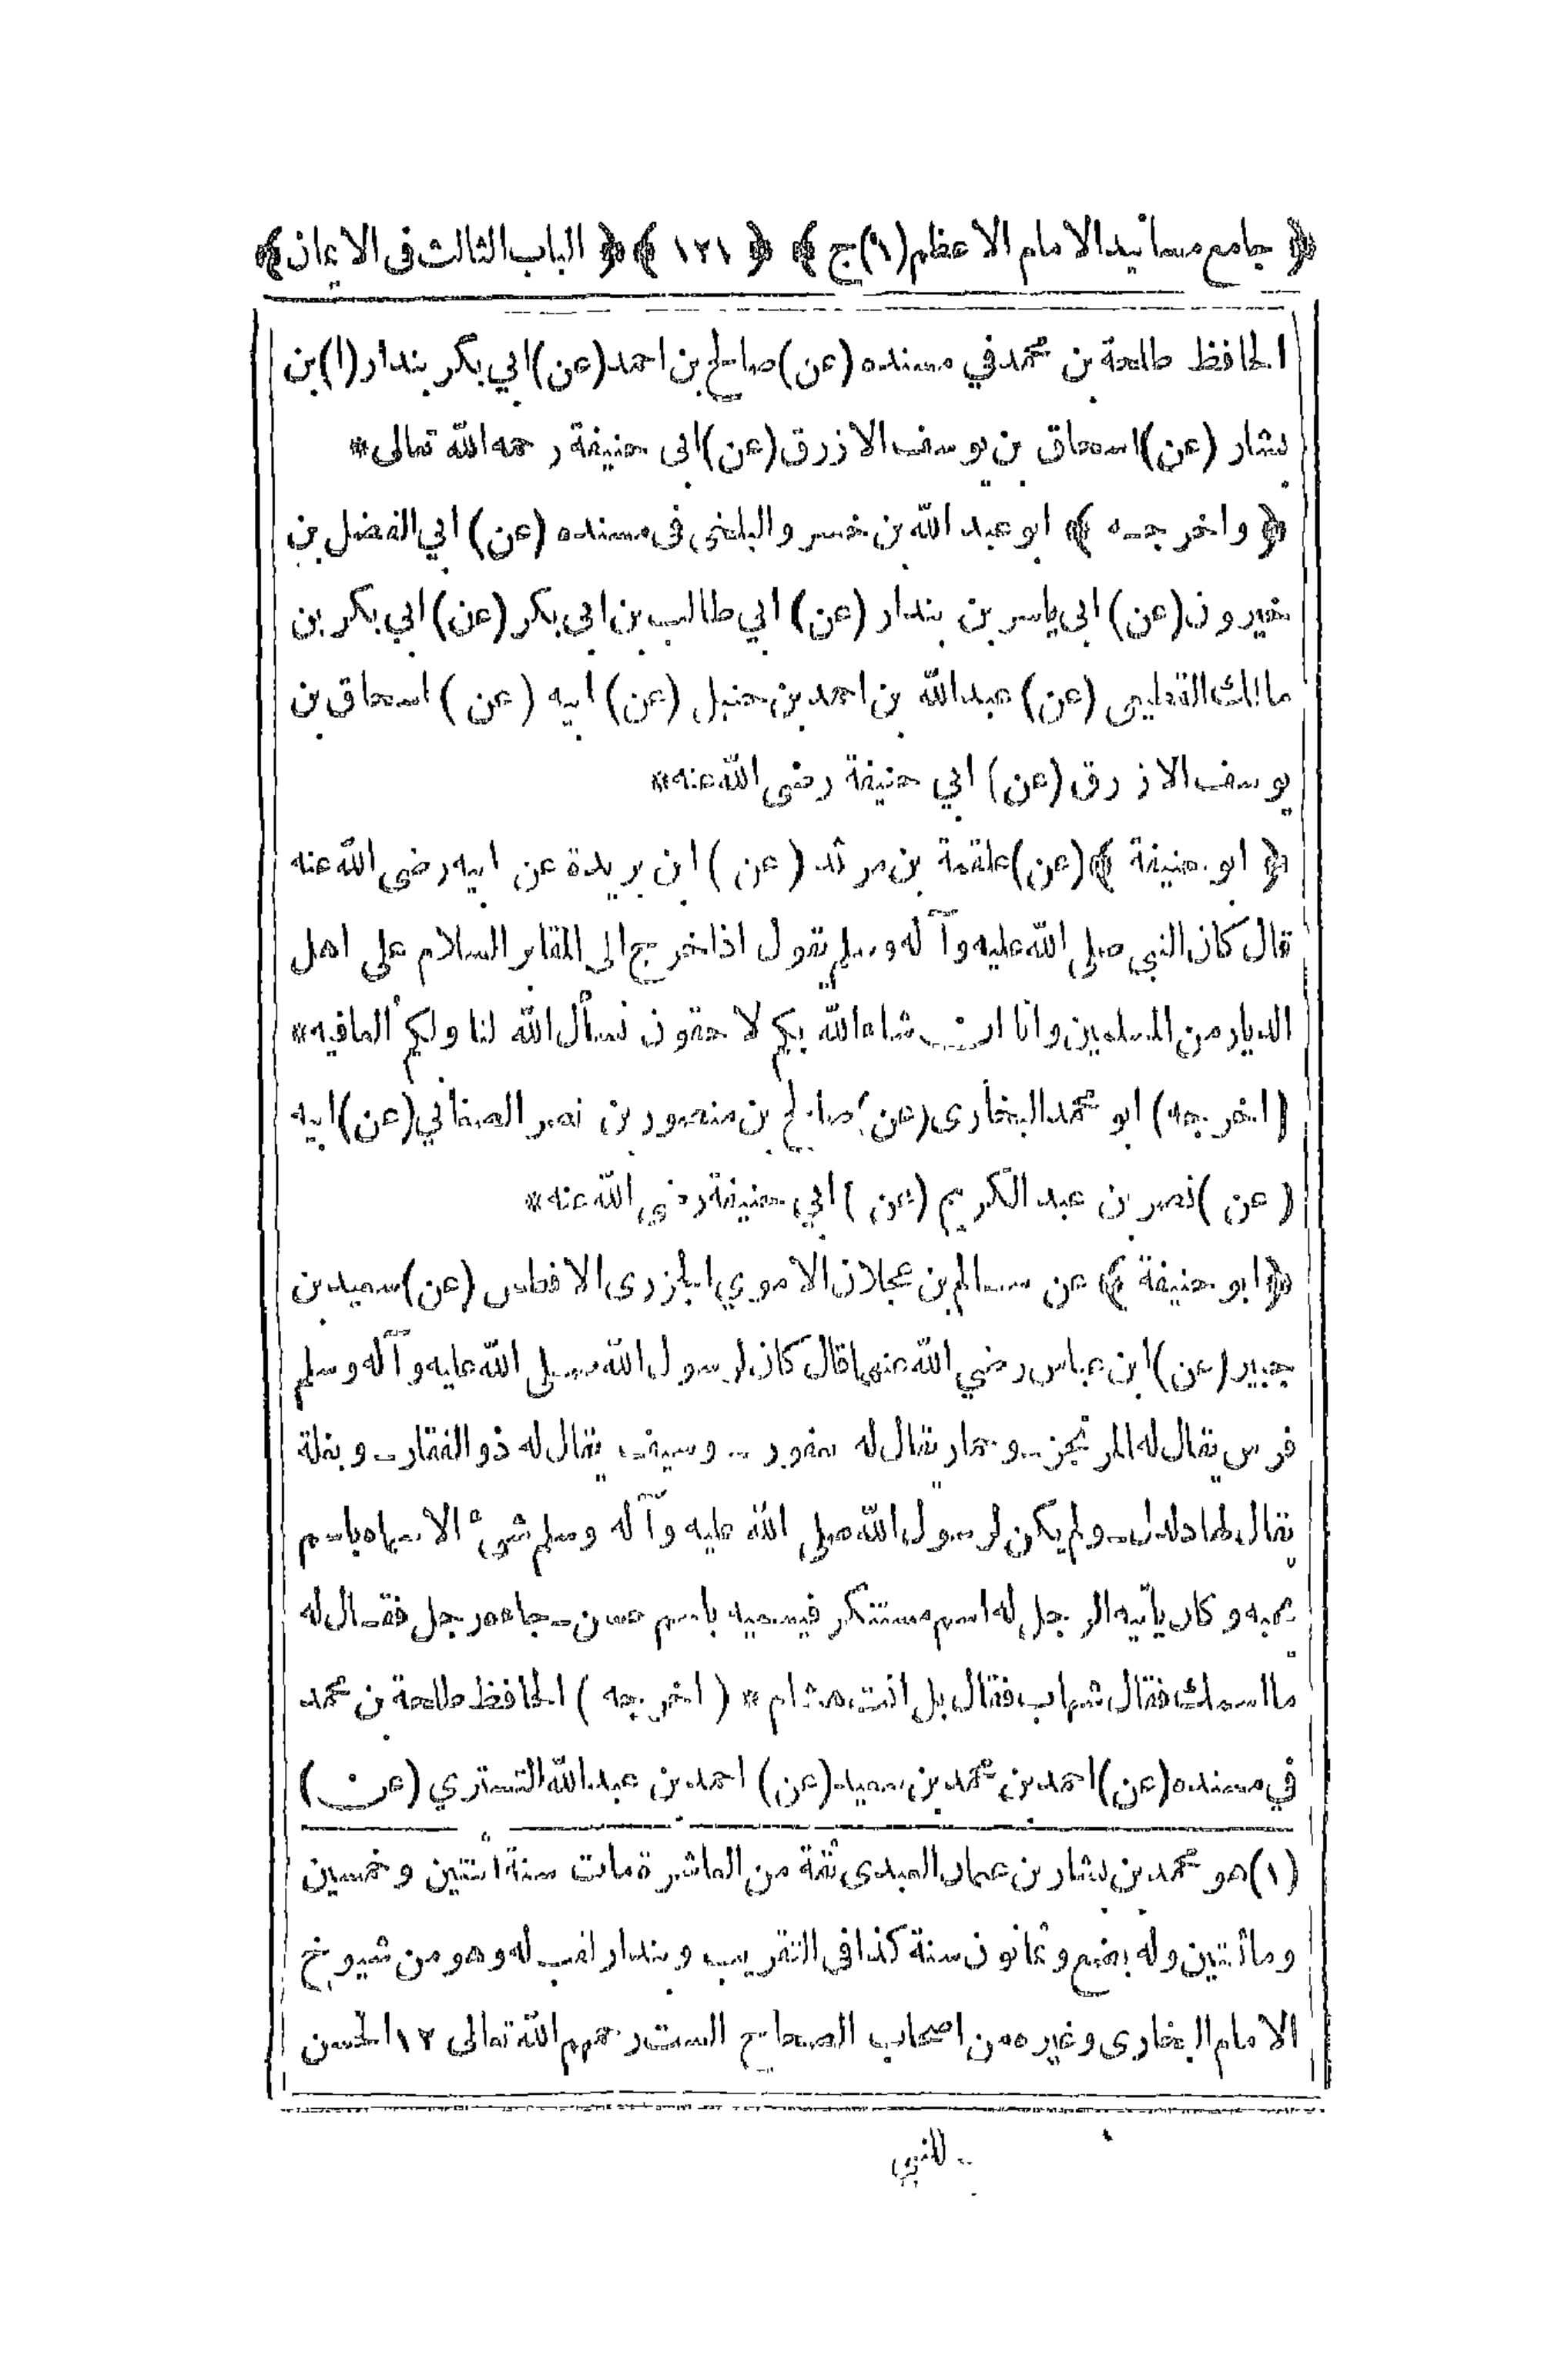 ﴿ جامع مسانيد الامام الاعظم (١) ج ﴾ ﴿ ١٢١ ﴾ ﴿ الباب الثالث فى الايمان ﴾
الحافظ طلحة بن محمد في مسنده (عن) صالح بن احمد (عن) ابي بكر بندار (١) بن
بشار (عن) اسحاق بن يوسف الازرق (عن) ابى حنيفة رحمه الله تعالى*
﴿ واخرجه ﴾ ابو عبد الله بن خسرو البلخى فى مسنده (عن) ابي الفضل بن
خيرون (عن) ابى ياسر بن بندار (عن) ابي طالب بن ابي بكر (عن) ابي بكر بن
مالك القطيعى (عن) عبد الله بن احمد بن حنبل (عن) ابيه (عن) اسحاق بن
يوسف الازرق (عن) ابي حنيفة رضى الله عنه*
﴿ ابو حنيفة ﴾ (عن) علقمة بن مرثد (عن) ابن بريدة عن ابيه رضى الله عنه
قال كان النبي صلى الله عليه وآله وسلم يقول اذا خرج الى المقابر السلام على اهل
الديار من المسلمين وانا ان شاء الله بكم لاحقون نسأل الله لنا ولكم العافيه*
(اخرجه) ابو محمد البخارى (عن) صالح بن منصور بن نصر الصغاني (عن) ابيه
(عن) نصر بن عبد الكريم (عن) ابي حنيفة رضي الله عنه*
﴿ ابو حنيفة ﴾ عن سالم بن عجلان الاموي الجزرى الافطس (عن) سعيد بن
جبير (عن) ابن عباس رضي الله عنهما قال كان لرسول الله صلى الله عليه وآله وسلم
فرس يقال له المرتجز ـ وحمار يقال له يعفور ـ وسيف يقال له ذو الفقار ـ وبغلة
يقال لها دلدل ـ ولم يكن لرسول الله صلى الله عليه وآله وسلم شىء الا سماه باسم
يحبه وكان يأتيه الرجل له اسم مستنكر فيسميه باسم حسن ـ جاءه رجل فقال له
ما اسمك فقال شهاب فقال بل انت هشام * (اخرجه) الحافظ طلحة بن محمد
في مسنده (عن) احمد بن محمد بن سعيد (عن) احمد بن عبد الله التستري (عن)
(١) هو محمد بن بشار بن عمان العبدى ثقة من العاشرة مات سنة اثنتين وخمسين
ومائتين وله بضع وثمانون سنة كذا فى التقريب وبندار لقب له وهو من شيوخ
الامام البخارى وغيره من اصحاب الصحاح الست رحمهم الله تعالى ١٢ الحسن